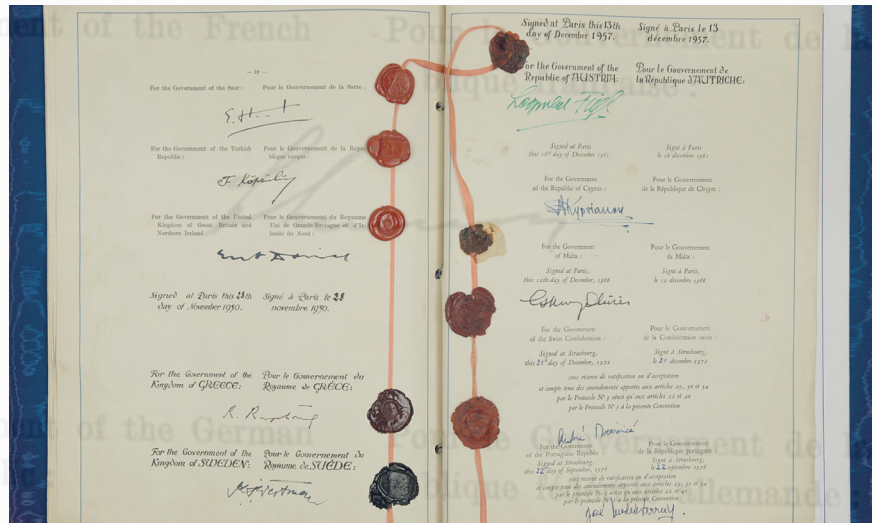 of the French
Pour le Gouvernement de la
— 19 —
For the Government of the Saar:
Pour le Gouvernement de la Sarre:
For the Government of the Turkish
Republic:
Pour le Gouvernement de la Répu-
blique turque:
For the Government of the United
Kingdom of Great Britain and
Northern Ireland:
Pour le Gouvernement du Royaume
Uni de Grande-Bretagne et d'Ir-
lande du Nord:
Signed at Paris this 28th
day of November 1950.
Signé à Paris le 28
novembre 1950.
For the Government of the
Kingdom of GREECE:
Pour le Gouvernement du
Royaume de GRÈCE:
For the Government of the
Kingdom of SWEDEN:
Pour le Gouvernement du
Royaume de SUÈDE:
of the German
Signed at Paris this 13th
day of December 1957.
Signé à Paris le 13
décembre 1957.
For the Government of the
Republic of AUSTRIA:
Pour le Gouvernement de
la République d'AUTRICHE:
Leopold Figl
Signed at Paris
this 16th day of December 1961
Signé à Paris
le 16 décembre 1961
For the Government
of the Republic of Cyprus:
Pour le Gouvernement
de la République de Chypre:
For the Government
of Malta:
Pour le Gouvernement
de Malte:
Signed at Paris,
this 12th day of December, 1966
Signé à Paris,
le 12 décembre 1966
For the Government
of the Swiss Confederation:
Pour le Gouvernement
de la Confédération suisse:
Signed at Strasbourg,
this 21st day of December, 1972
Signé à Strasbourg,
le 21 décembre 1972
sous réserve de ratification ou d'acceptation
et compte tenu des amendements apportés aux articles 29, 30 et 34
par le Protocole N° 3 ainsi qu'aux articles 22 et 40
par le Protocole N° 5 à la présente Convention
For the Government
of the Portuguese Republic
Pour le Gouvernement
de la République portugaise
Signed at Strasbourg,
this 22nd day of September, 1976
Signé à Strasbourg,
le 22 septembre 1976
sous réserve de ratification ou d'acceptation
et compte tenu des amendements apportés aux articles 29, 30 et 34
par le Protocole N° 3 ainsi qu'aux articles 22 et 40
par le Protocole N° 5 à la présente Convention